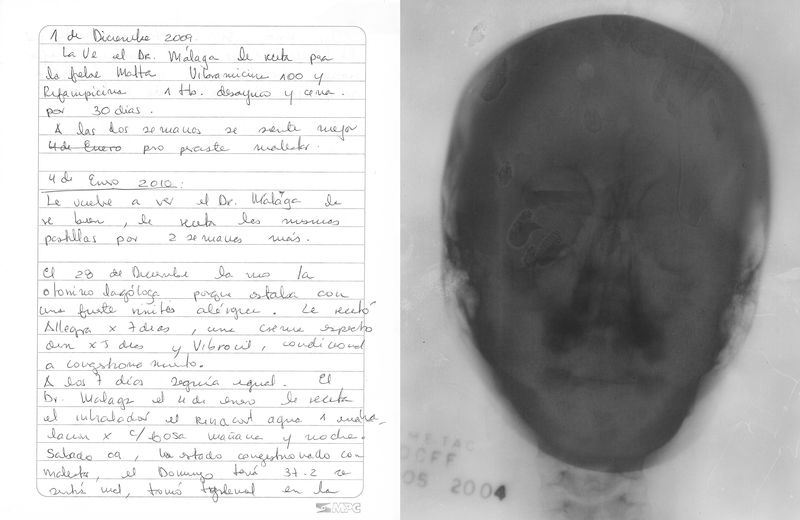 1 de Diciembre 2009
La ve el Dr. Málaga le receta para
la fiebre Malta Vibramicina 100 y
Rifampicina 1 tb. desayuno y cena.
por 30 días.
A las dos semanas se siente mejor
4 de Enero pero persiste malestar.
4 de Enero 2010:
Le vuelve a ver el Dr. Malaga la
ve bien, le receta las mismas
pastillas por 2 semanas más.
El 28 de Diciembre la vio la
otorrino porque estaba con
una fuerte rinitis alérgica. Le recetó
Allegra x 7 dias, una crema
x 5 dias y Vibrocil, condicional
a congestionamiento.
A los 7 días seguía igual. El
Dr. Malaga el 4 de enero le receta
el inhalador el Rinocort aqua 1
x c/fosa mañana y noche.
Sabado 09, ha estado congestionado con
malestar, el Domingo tenía 37.2 se
sentía mal, tomó en la
MPC
METAC
OCFF
05 2004